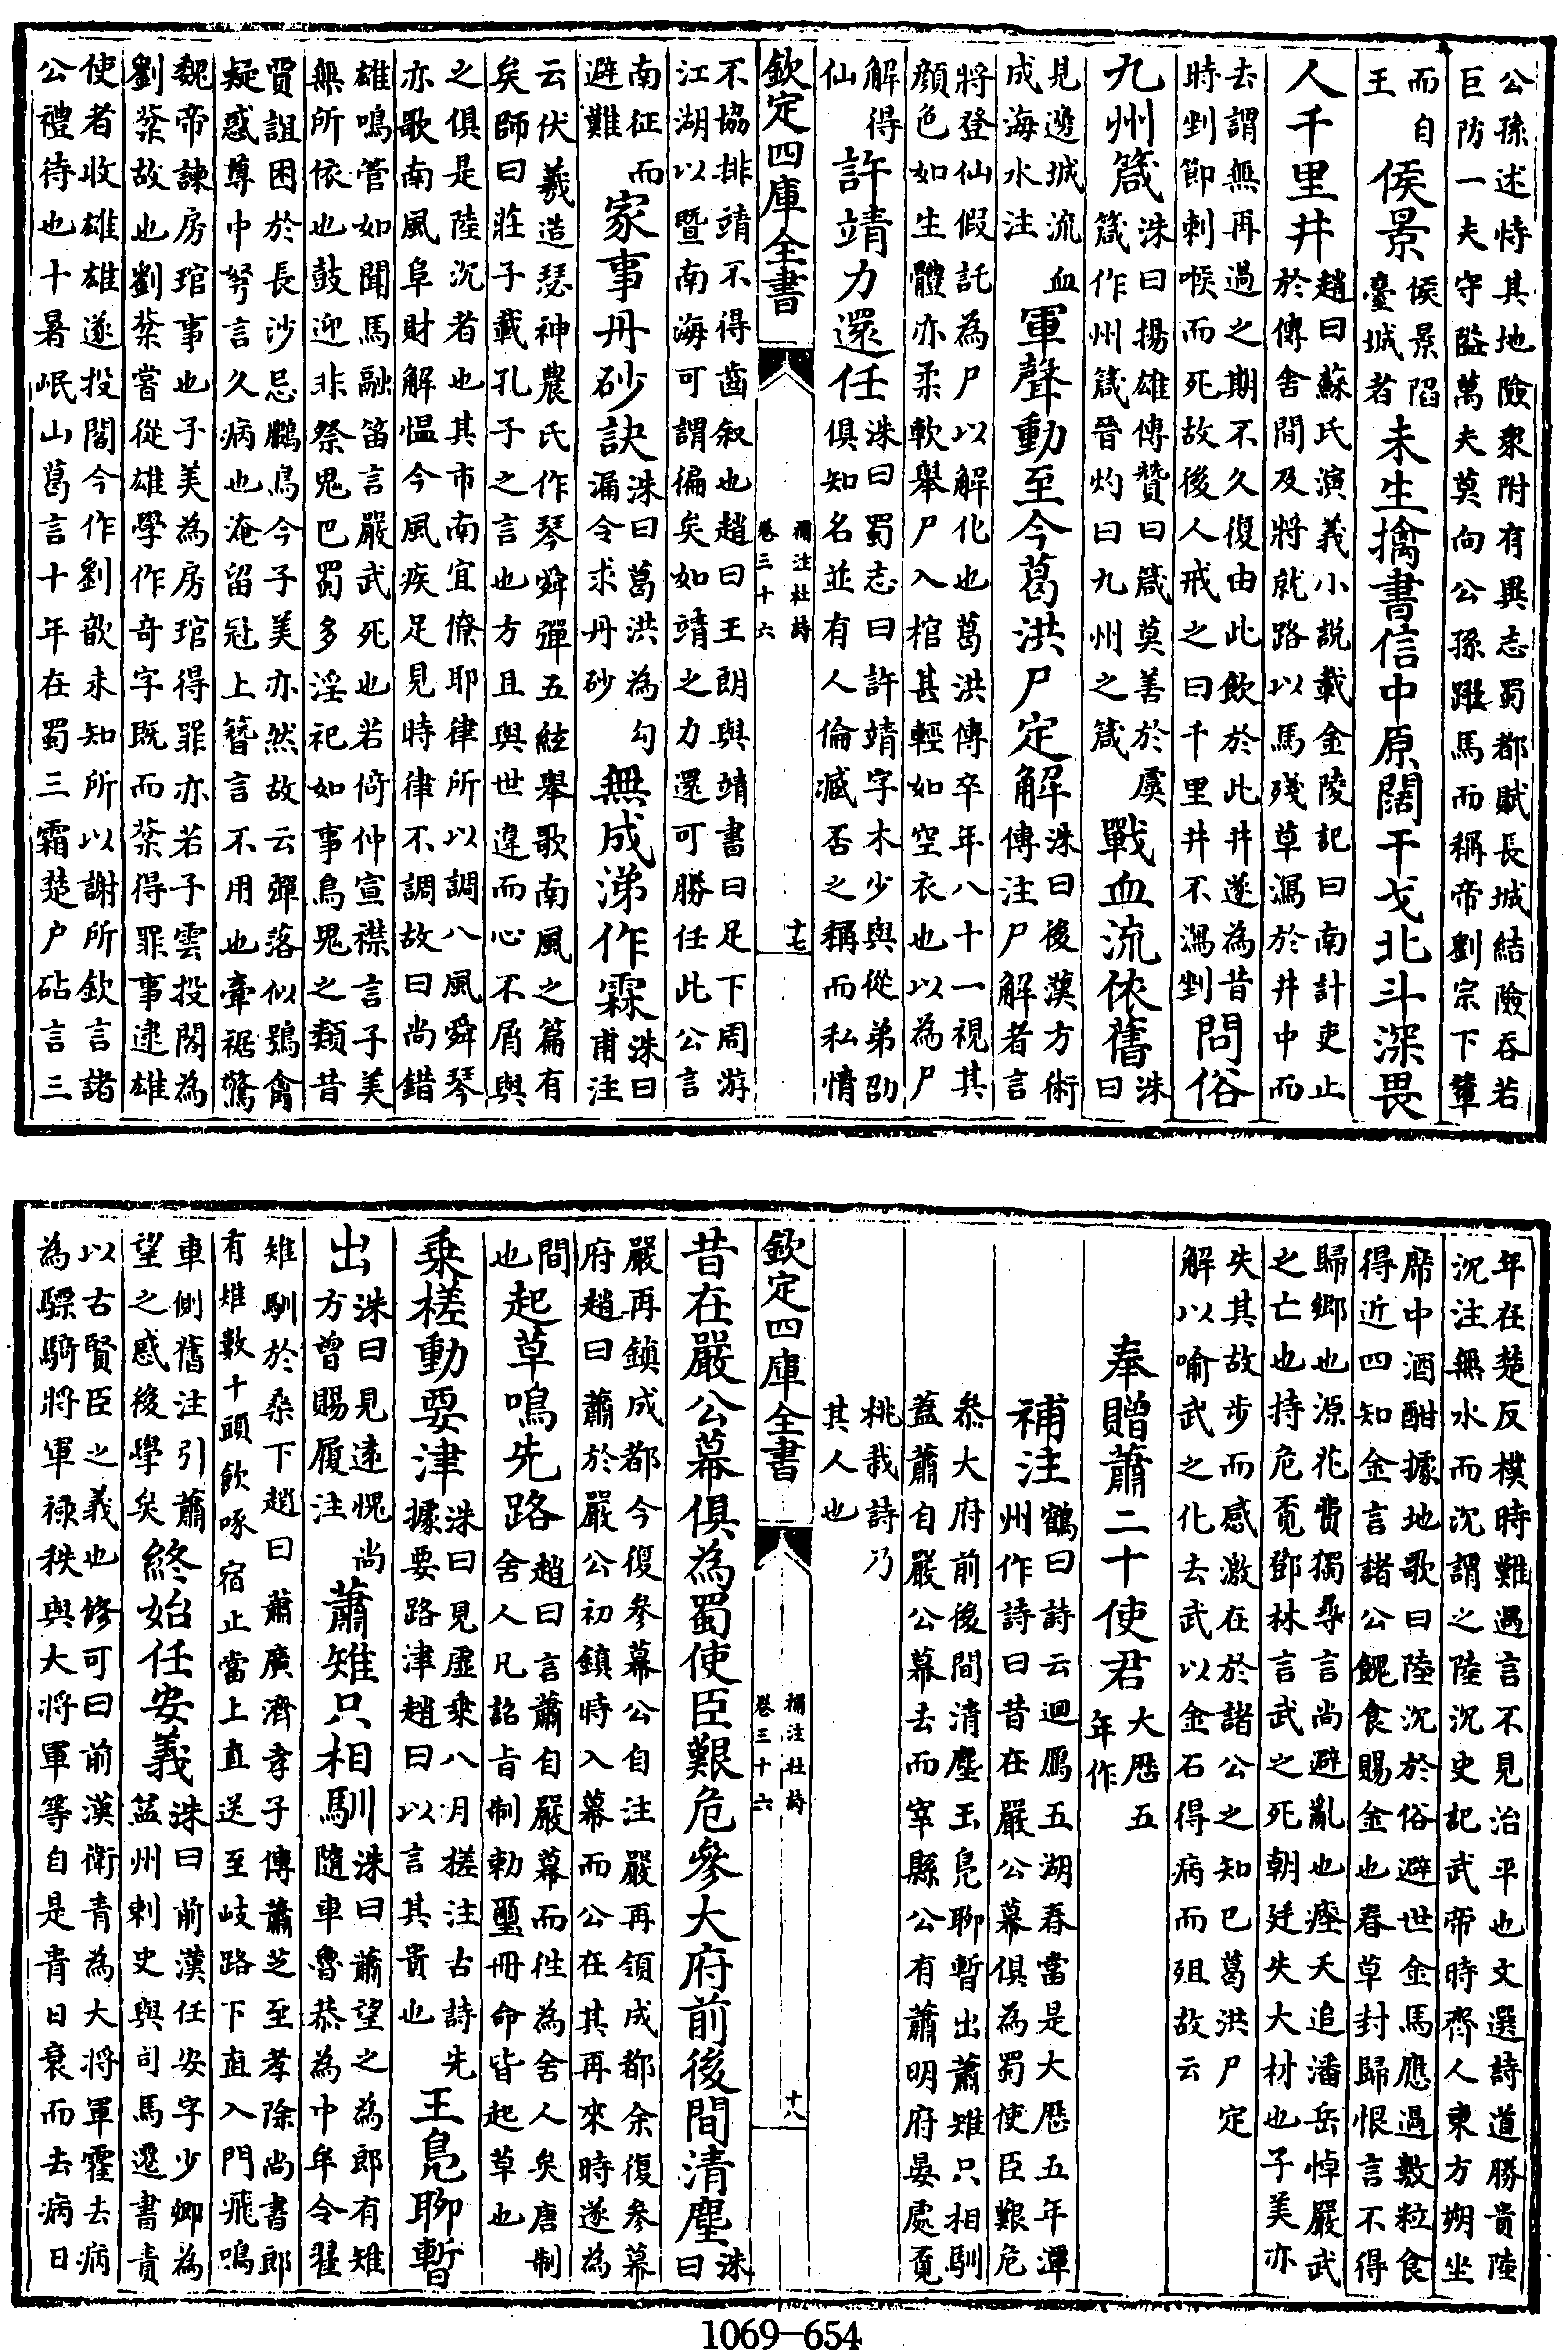 公孫述恃其地險衆附有異志蜀都賦長城結險吞若
巨防一夫守隘萬夫莫向公孫躍馬而稱帝劉宗下輦
而自王侯景侯景陷臺城者未生擒書信中原闊干戈北斗深畏
人千里井趙曰蘇氏演義小説載金陵記曰南計吏止於傳舍間及將就路以馬殘草瀉於井中而
去謂無再過之期不久復由此飲於此井遂為昔時剉節刺喉而死故後人戒之曰千里井不瀉剉問俗
九州箴洙曰揚雄傳贊曰箴莫善於虞箴作州箴晉灼曰九州之箴戰血流依舊洙曰
見邊城流血成海水注軍聲動至今葛洪尸定解洙曰後漢方術傳注尸解者言
將登仙假託為尸以解化也葛洪傳卒年八十一視其
顔色如生體亦柔軟舉尸入棺甚輕如空衣也以為尸
解得仙許靖力還任洙曰蜀志曰許靖字木少與從弟劭俱知名並有人倫臧否之稱而私情
欽定四庫全書 補注杜詩 卷三十六 十七
不協排靖不得齒叙也趙曰王朗與靖書曰足下周游
江湖以暨南海可謂徧矣如靖之力還可勝任此公言
南征而避難家事丹砂訣洙曰葛洪為勾漏令求丹砂無成涕作霖洙曰甫注
云伏羲造瑟神農氏作琴舜彈五絃舉歌南風之篇有
矣師曰莊子載孔子之言也方且與世違而心不屑與
之俱是陸沉者也其市南宜僚耶律所以調八風舜琴
亦歌南風阜財解愠今風疾足見時律不調故曰尚錯
雄鳴管如聞馬融笛言嚴武死也若倚仲宣襟言子美
無所依也鼓迎非祭鬼巴蜀多淫祀如事烏鬼之類昔
賈誼困於長沙忌鵩鳥今子美亦然故云彈落似鴞禽
疑惑尊中弩言久病也淹留冠上簪言不用也牽裾驚
魏帝諫房琯事也子美為房琯得罪亦若子雲投閣為
劉棻故也劉棻嘗從雄學作奇字既而棻得罪事逮雄
使者收雄雄遂投閣今作劉歆未知所以謝所欽言諸
公禮待也十暑岷山葛言十年在蜀三霜楚户砧言三
年在楚反樸時難遇言不見治平也文選詩道勝貴陸
沉注無水而沉謂之陸沉史記武帝時齊人東方朔坐
席中酒酣據地歌曰陸沉於俗避世金馬應過數粒食
得近四知金言諸公餽食賜金也春草封歸恨言不得
歸鄉也源花費獨尋言尚避亂也瘞夭追潘岳悼嚴武
之亡也持危覓鄧林言武之死朝廷失大材也子美亦
失其故步而感激在於諸公之知已葛洪尸定
解以喻武之化去武以金石得病而殂故云
奉贈蕭二十使君大厯五年作
補注鶴曰詩云迴鴈五湖春當是大厯五年潭州作詩曰昔在嚴公幕俱為蜀使臣艱危
叅大府前後間清塵王鳧聊暫出蕭雉只相馴
蓋蕭自嚴公幕去而宰縣公有蕭明府晏處覓
桃栽詩乃
其人也
欽定四庫全書 補注杜詩 卷三十六 十八
昔在嚴公幕俱為蜀使臣艱危參大府前後間清塵洙曰
嚴再鎮成都今復參幕公自注嚴再領成都余復參幕
府趙曰蕭於嚴公初鎮時入幕而公在其再來時遂為
間也起草鳴先路趙曰言蕭自嚴幕而徃為舍人矣唐制舍人凡詔旨制勅璽冊命皆起草也
乘槎動要津洙曰見虚乘八月槎注古詩先據要路津趙曰以言其貴也王鳧聊暫
出洙曰見遠愧尚方曾賜履注蕭雉只相馴洙曰蕭望之為郎有雉隨車魯恭為中牟令翟
雉馴於桑下趙曰蕭廣濟孝子傳蕭芝至孝除尚書郎
有雉數十頭飲啄宿止當上直送至岐路下直入門飛鳴
車側舊注引蕭望之感後學矣終始任安義洙曰前漢任安字少卿為益州刺史與司馬遷書責
以古賢臣之義也修可曰前漢衛青為大將軍霍去病
為驃騎將軍禄秩與大將軍等自是青日衰而去病日
1069-654